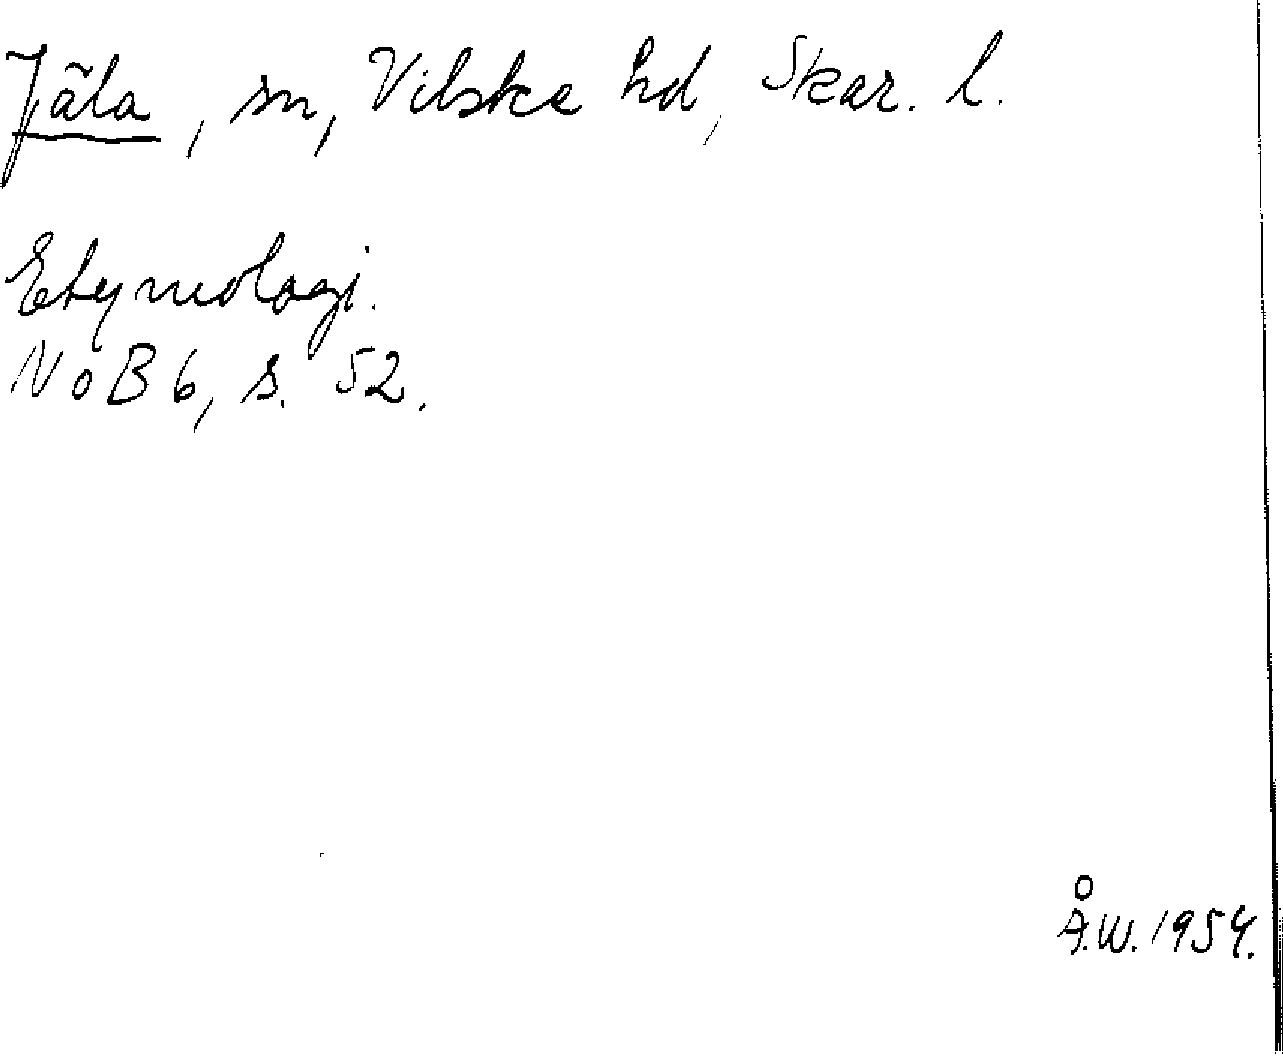 Jäla, sn, Vilske hd, Skar. l.
Etymologi.
NoB 6, s. 52.
Å.W. 1954.